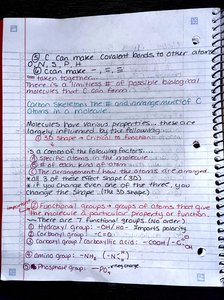 ⑤ C can make covalent bonds to other atoms
O, N, S, P, H
⑥ C can make -, =, ≡.
taken together...
there is a limitless # of possible biological
molecules that C can form.
Carbon Skeleton: The # and arrangement of C
Atoms in a molecule.
Molecules have various properties... these are
largely influenced by the following:
① 3D shape is Critical to function:
is a combo of the following factors...
specific atoms in the molecule
# of each kinds of atoms
The arrangement / how the atoms are arranged.
*all 3 of these affect shape (3D)
* if you change even one of the "three", you
change the shape. (the 3D shape.)
② Functional groups → groups of atoms that give
the molecule a particular property or function.
-There are 7 functional groups (No order):
① Hydroxyl group: -OH / HO- imports polarity
② Carbonyl group: -C=O
③ Carboxyl group / carboxylic acid: -COOH /
④ amino group: -NH₂
⑤ Phosphate group: -PO₄